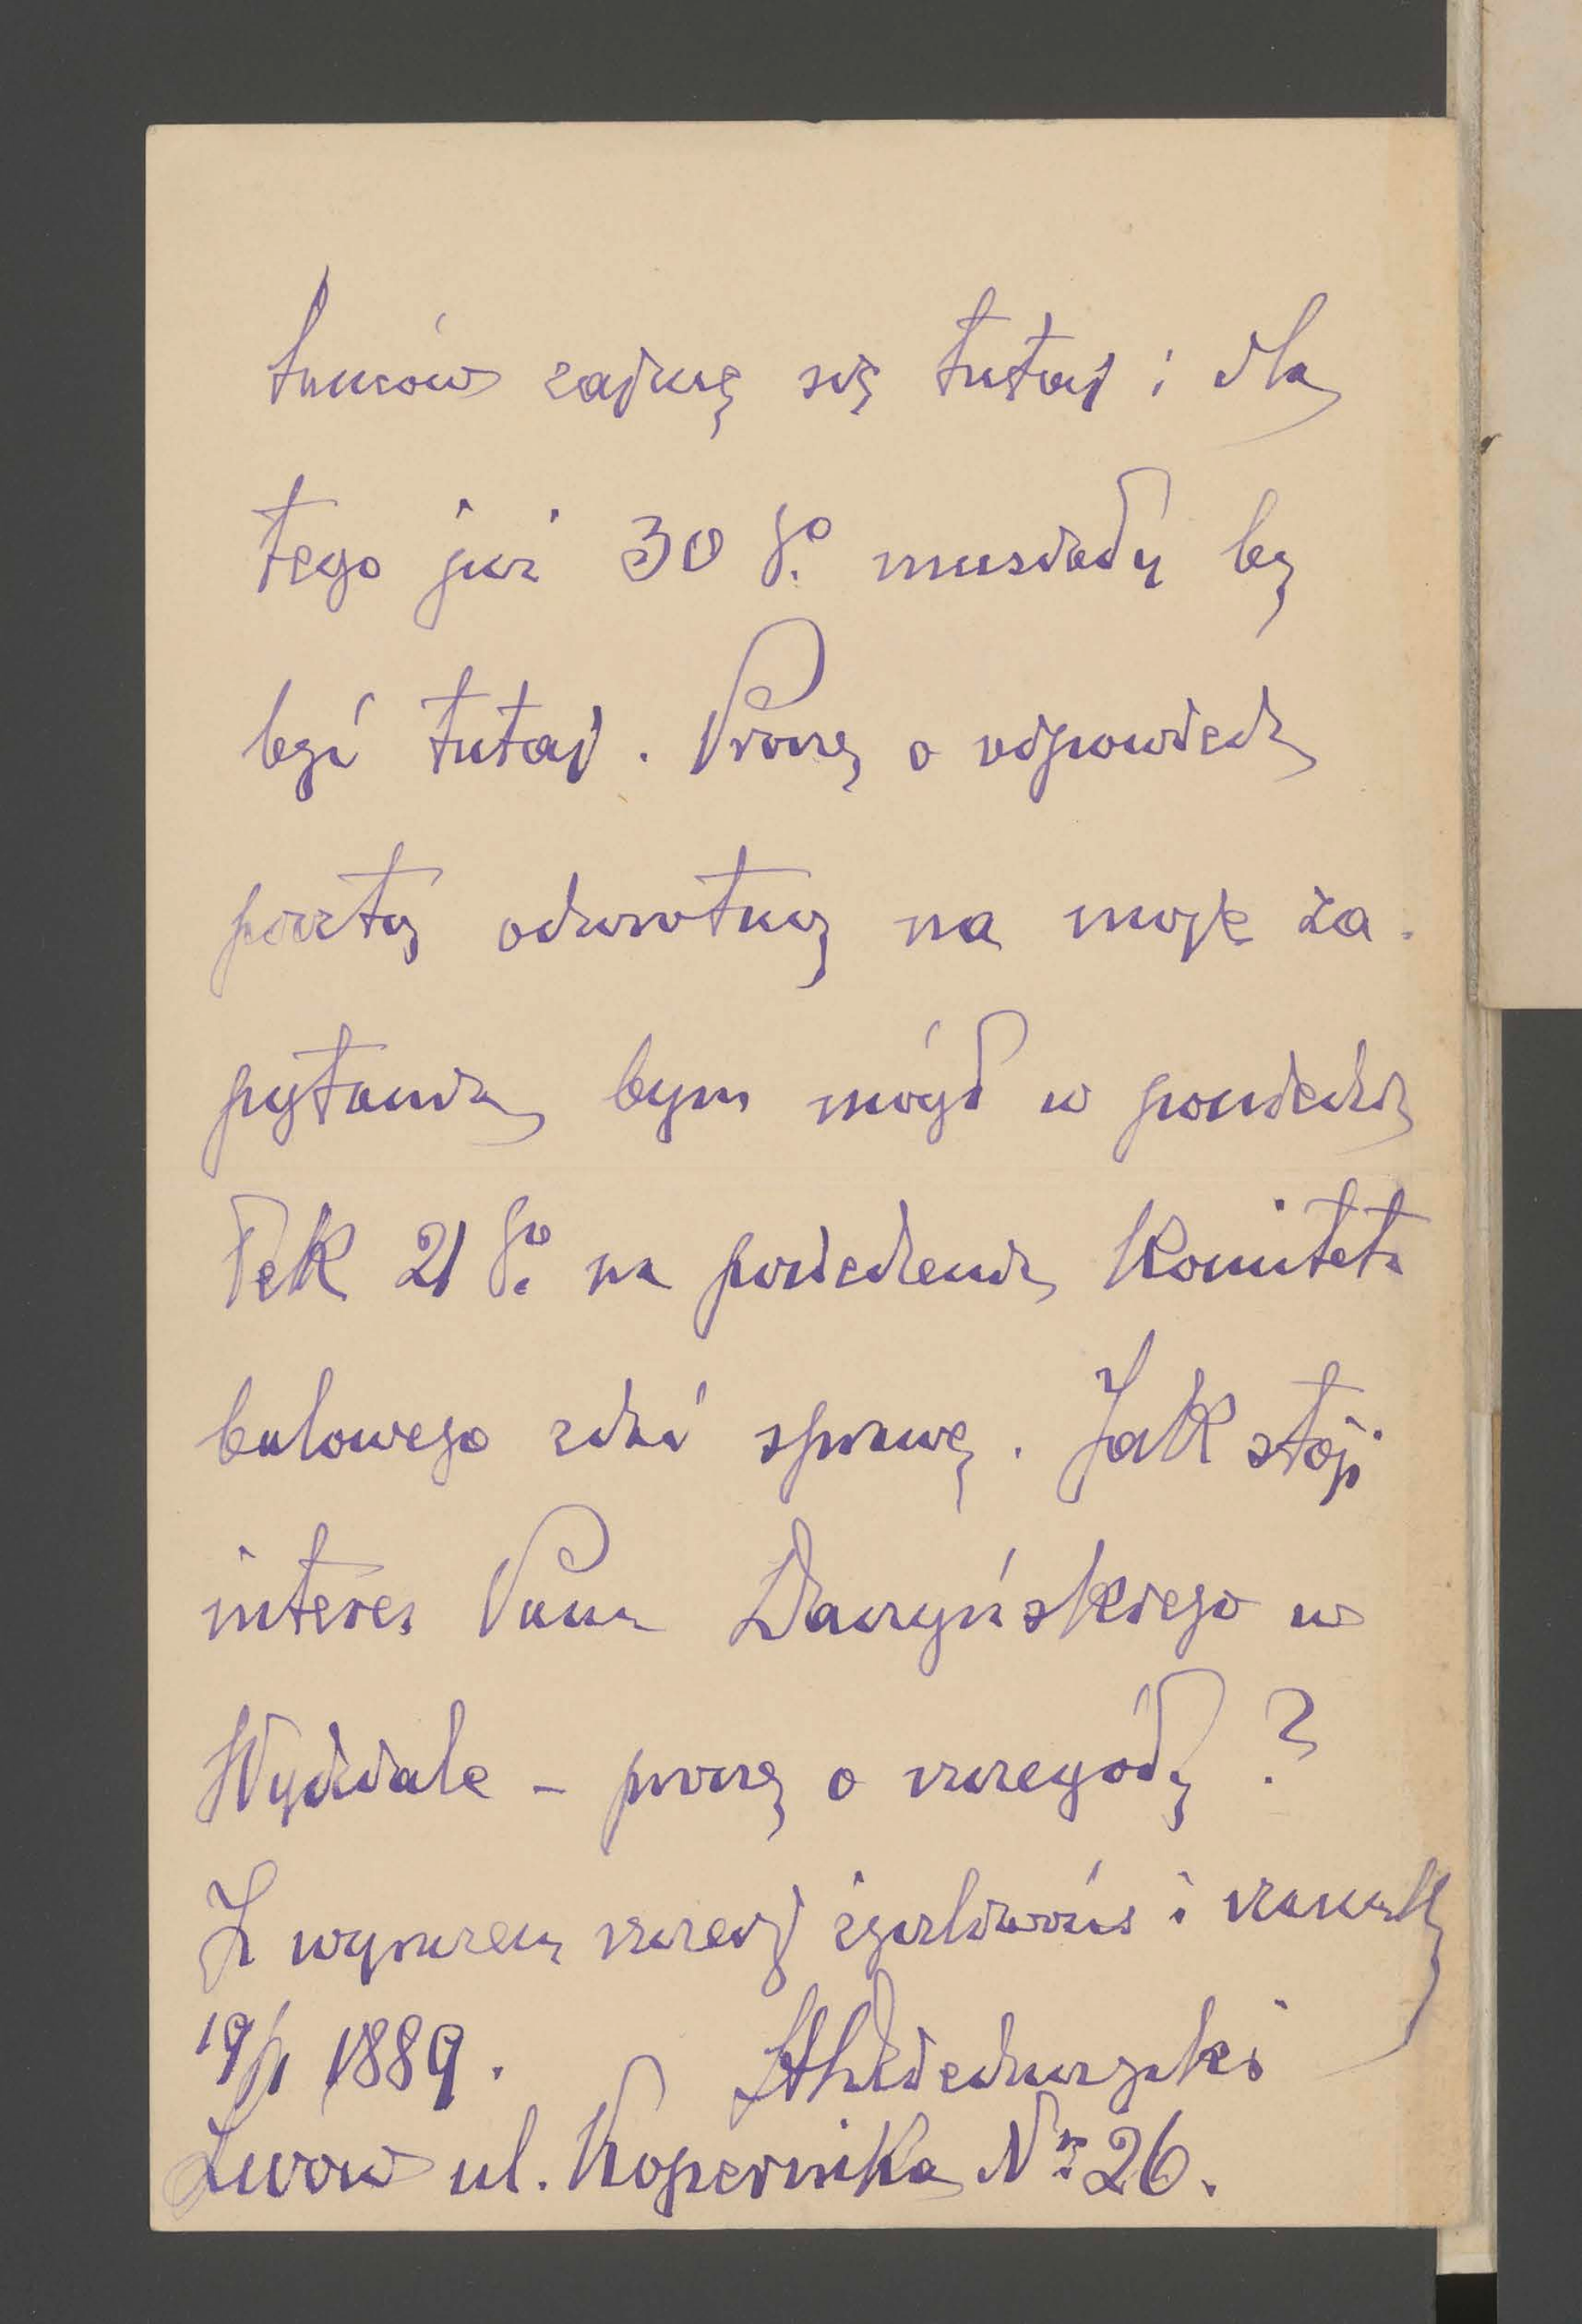 tuńców zajmę się tutaj i dla
tego już 30 go musiały by
być tutaj. Proszę o odpowiedź
pocztą odwrotną na moje za-
pytania bym mógł w poniedzia
łek 21 go na posiedzeniu Komitetu
balowego zdać sprawę. Jak stoji
interes Pana Daczyńskiego w
Wydziale – proszę o szczegóły?
Z wyrazem szczerej życzliwości i szacunku
19/1 1889.
Lwow ul. Kopernika Nr 26.